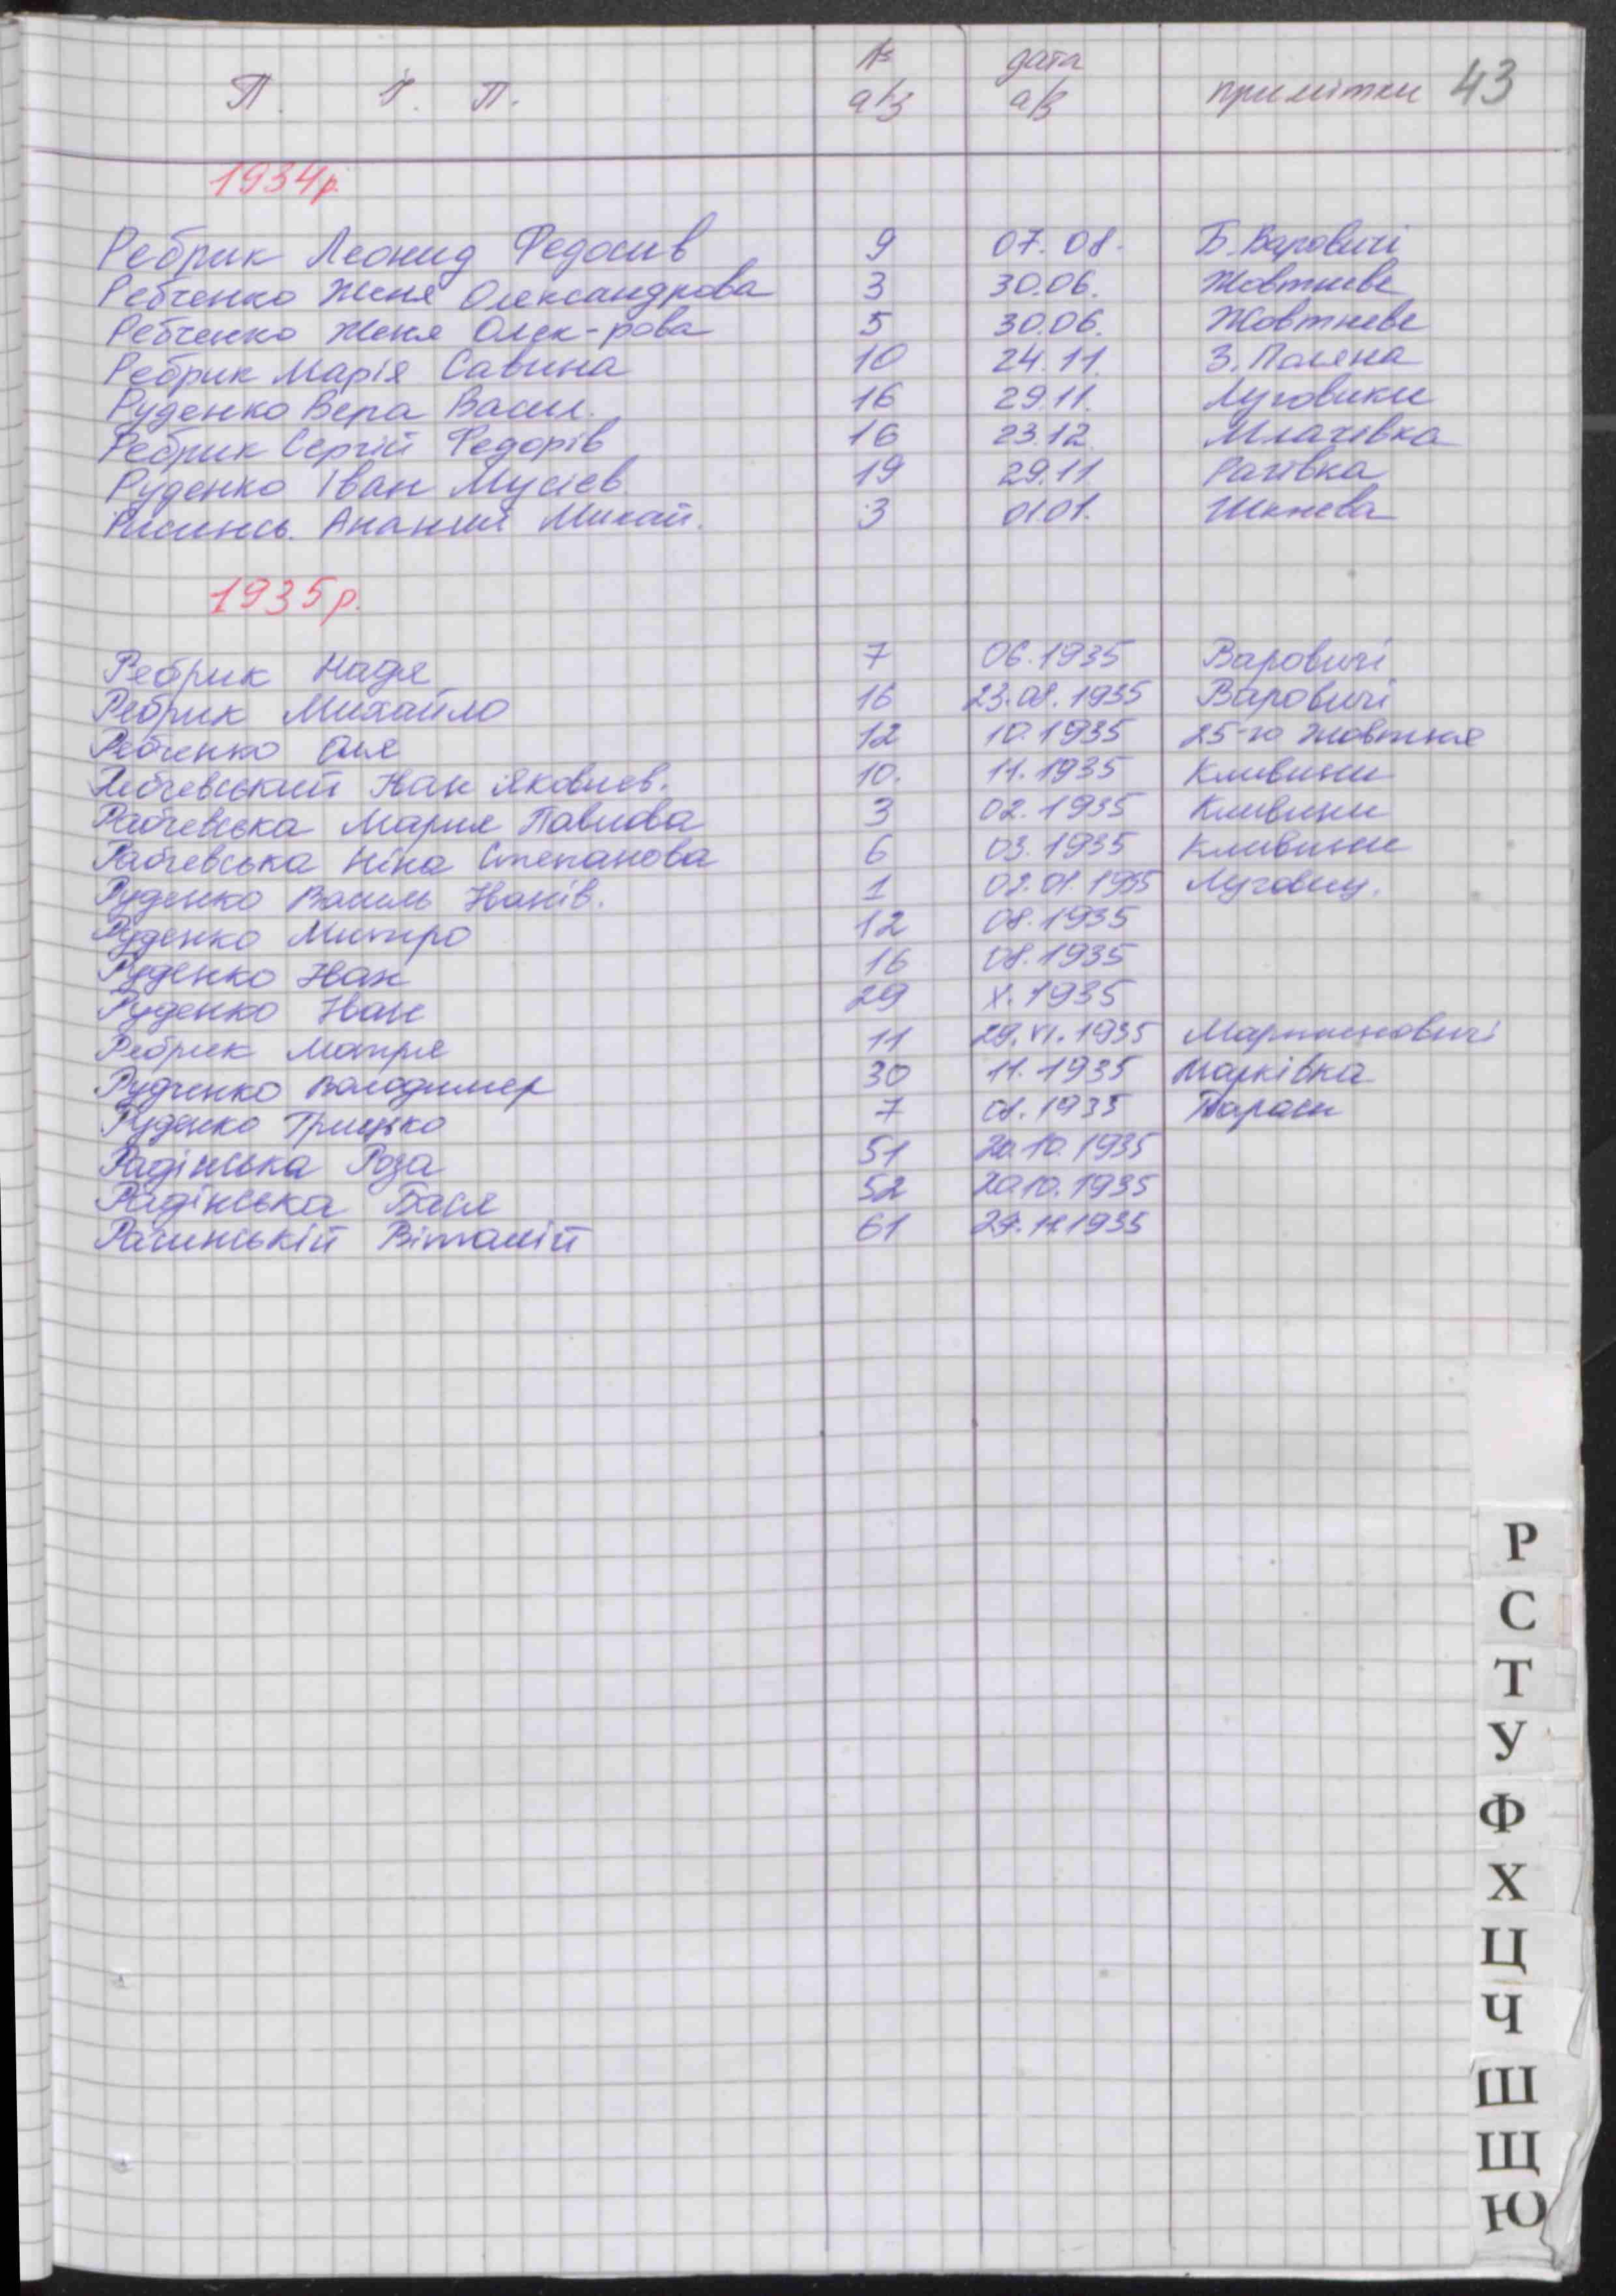 П. І. П. № а/з дата а/з примітки 43
1934р.
Ребрик Леонид Федосив 9 07.08. Б. Варовичі
Ребченко Женя Олександрова 3 30.06. Жовтневе
Ребченко Женя Олек-рова 5 30.06. Жовтневе
Ребрик Марія Савина 10 24.11. З. Поляна
Руденко Вера Васил. 16 29.11. Луговики
Ребрик Сергій Федорів 16 23.12. Млачівка
Руденко Іван Мусієв 19 29.11. Рагівка
Ананий Михай. 3 01.01.
1935р.
Ребрик Надя 7 06.1935 Варовичі
Ребрик Михайло 16 23.08.1935 Варовичі
Ребченко Оля 12 10.1935 25-ю жовтня
Іван Яковлев. 10. 11.1935 Кливини
Рабчевська Мария Павлова 3 02.1935 Кливини
Рабчевська Ніна Степанова 6 03.1935 Кливини
Руденко Василь Іванів. 1 1935 Луговиц.
Руденко Митро 12 08.1935
Руденко Іван 16 08.1935
Руденко Іван 29 X.1935
Ребрик Мотря 11 29.VI.1935 Мартиновичі
Рудченко Володимер 30 11.1935 Марківка
Руденко Грицько 7 08.1935 Тараси
Радінська Роза 51 20.10.1935
Радінська Бася 52 20.10.1935
Рачинській Віталій 61 29.11.1935
Р
С
Т
У
Ф
Х
Ц
Ч
Ш
Щ
Ю